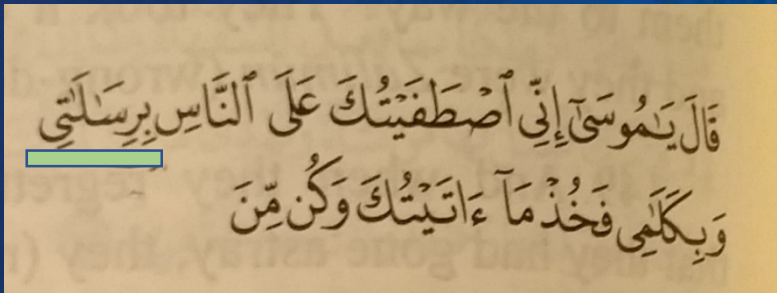 قَالَ يَـٰمُوسَىٰٓ إِنِّى ٱصۡطَفَيۡتُكَ عَلَى ٱلنَّاسِ بِرِسَـٰلَـٰتِى
وَبِكَلَـٰمِى فَخُذۡ مَآ ءَاتَيۡتُكَ وَكُن مِّنَ